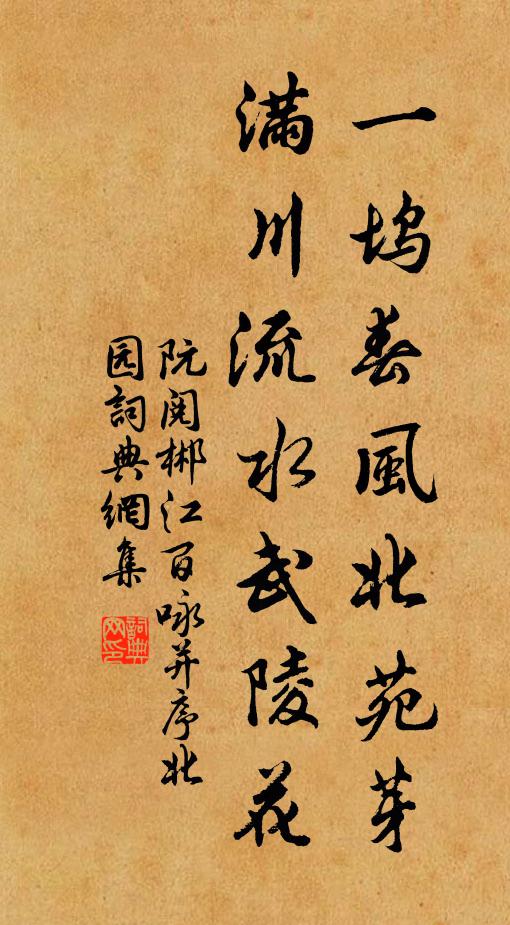 一塢春風北苑芽
滿川流水武陵花
阮閱郴江百咏并序北
园詞典網集
詞典网印